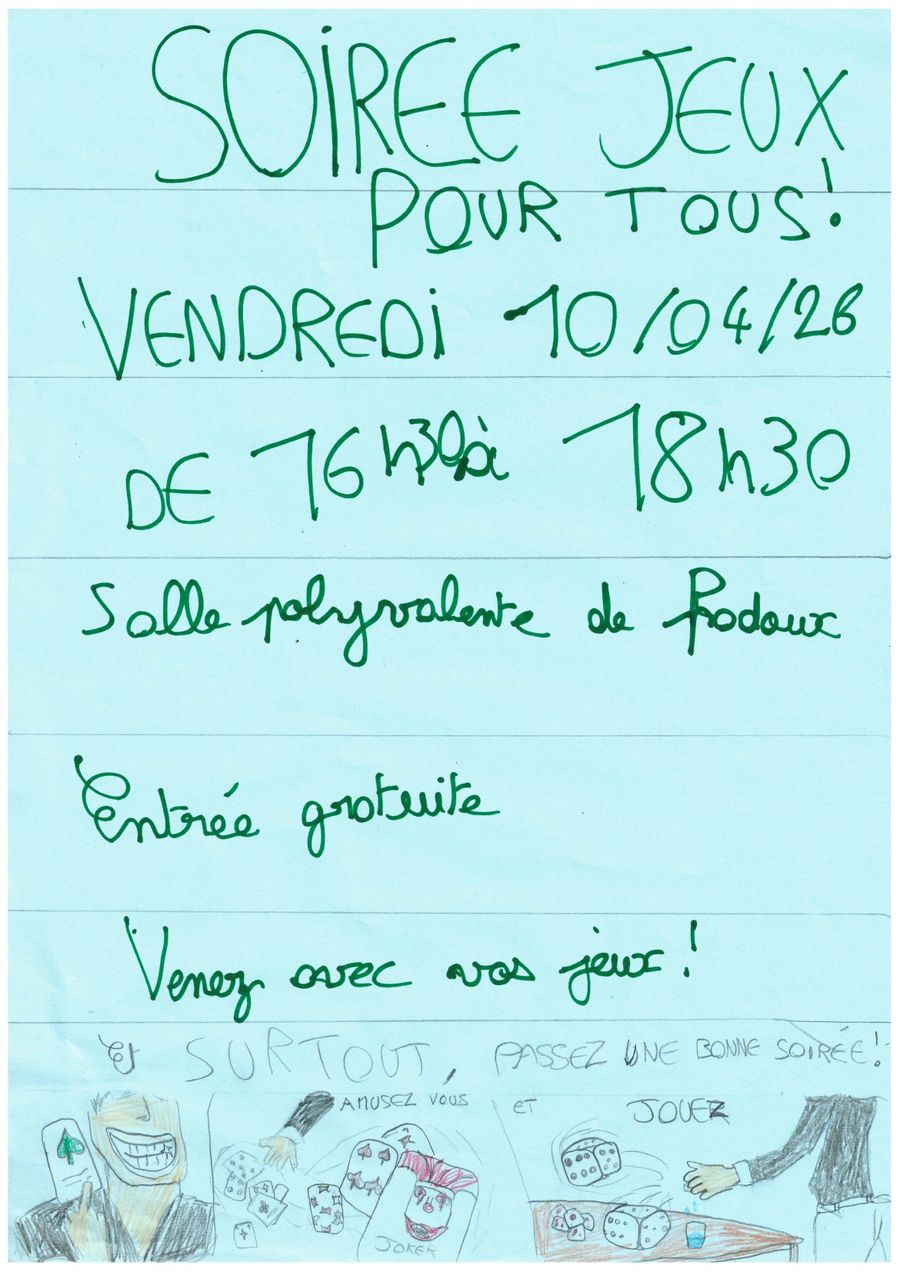 SOiREE JEUX
POUR TOUS!
VENDREDi 10/04/26
DE 16h30 à 18h30
Salle polyvalente de Rodoux
Entrée gratuite
Venez avec vos jeux!
Et SURTOUT, PASSEZ UNE BONNE SOIRÉE!
AMUSEZ VOUS ET JOUEZ
JOKER